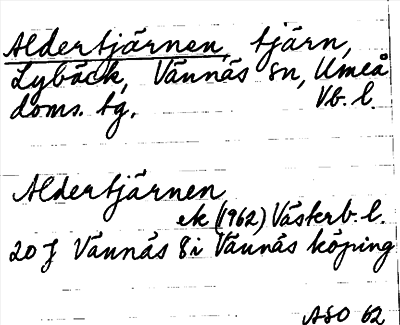 Aldertjärnen, tjärn,
Lybäck, Vännäs sn, Umeå
doms. tg. Vb. l.
Aldertjärnen
ek (1962) Västerb. l.
20 J Vännäs 8i Vännäs köping
ASO 62